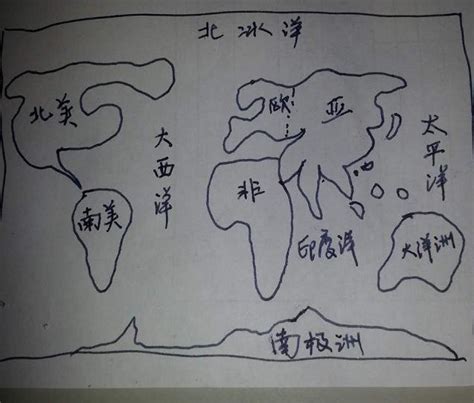 北冰洋
北美
欧
亚
大西洋
太平洋
南美
非
印度洋
大洋洲
南极洲